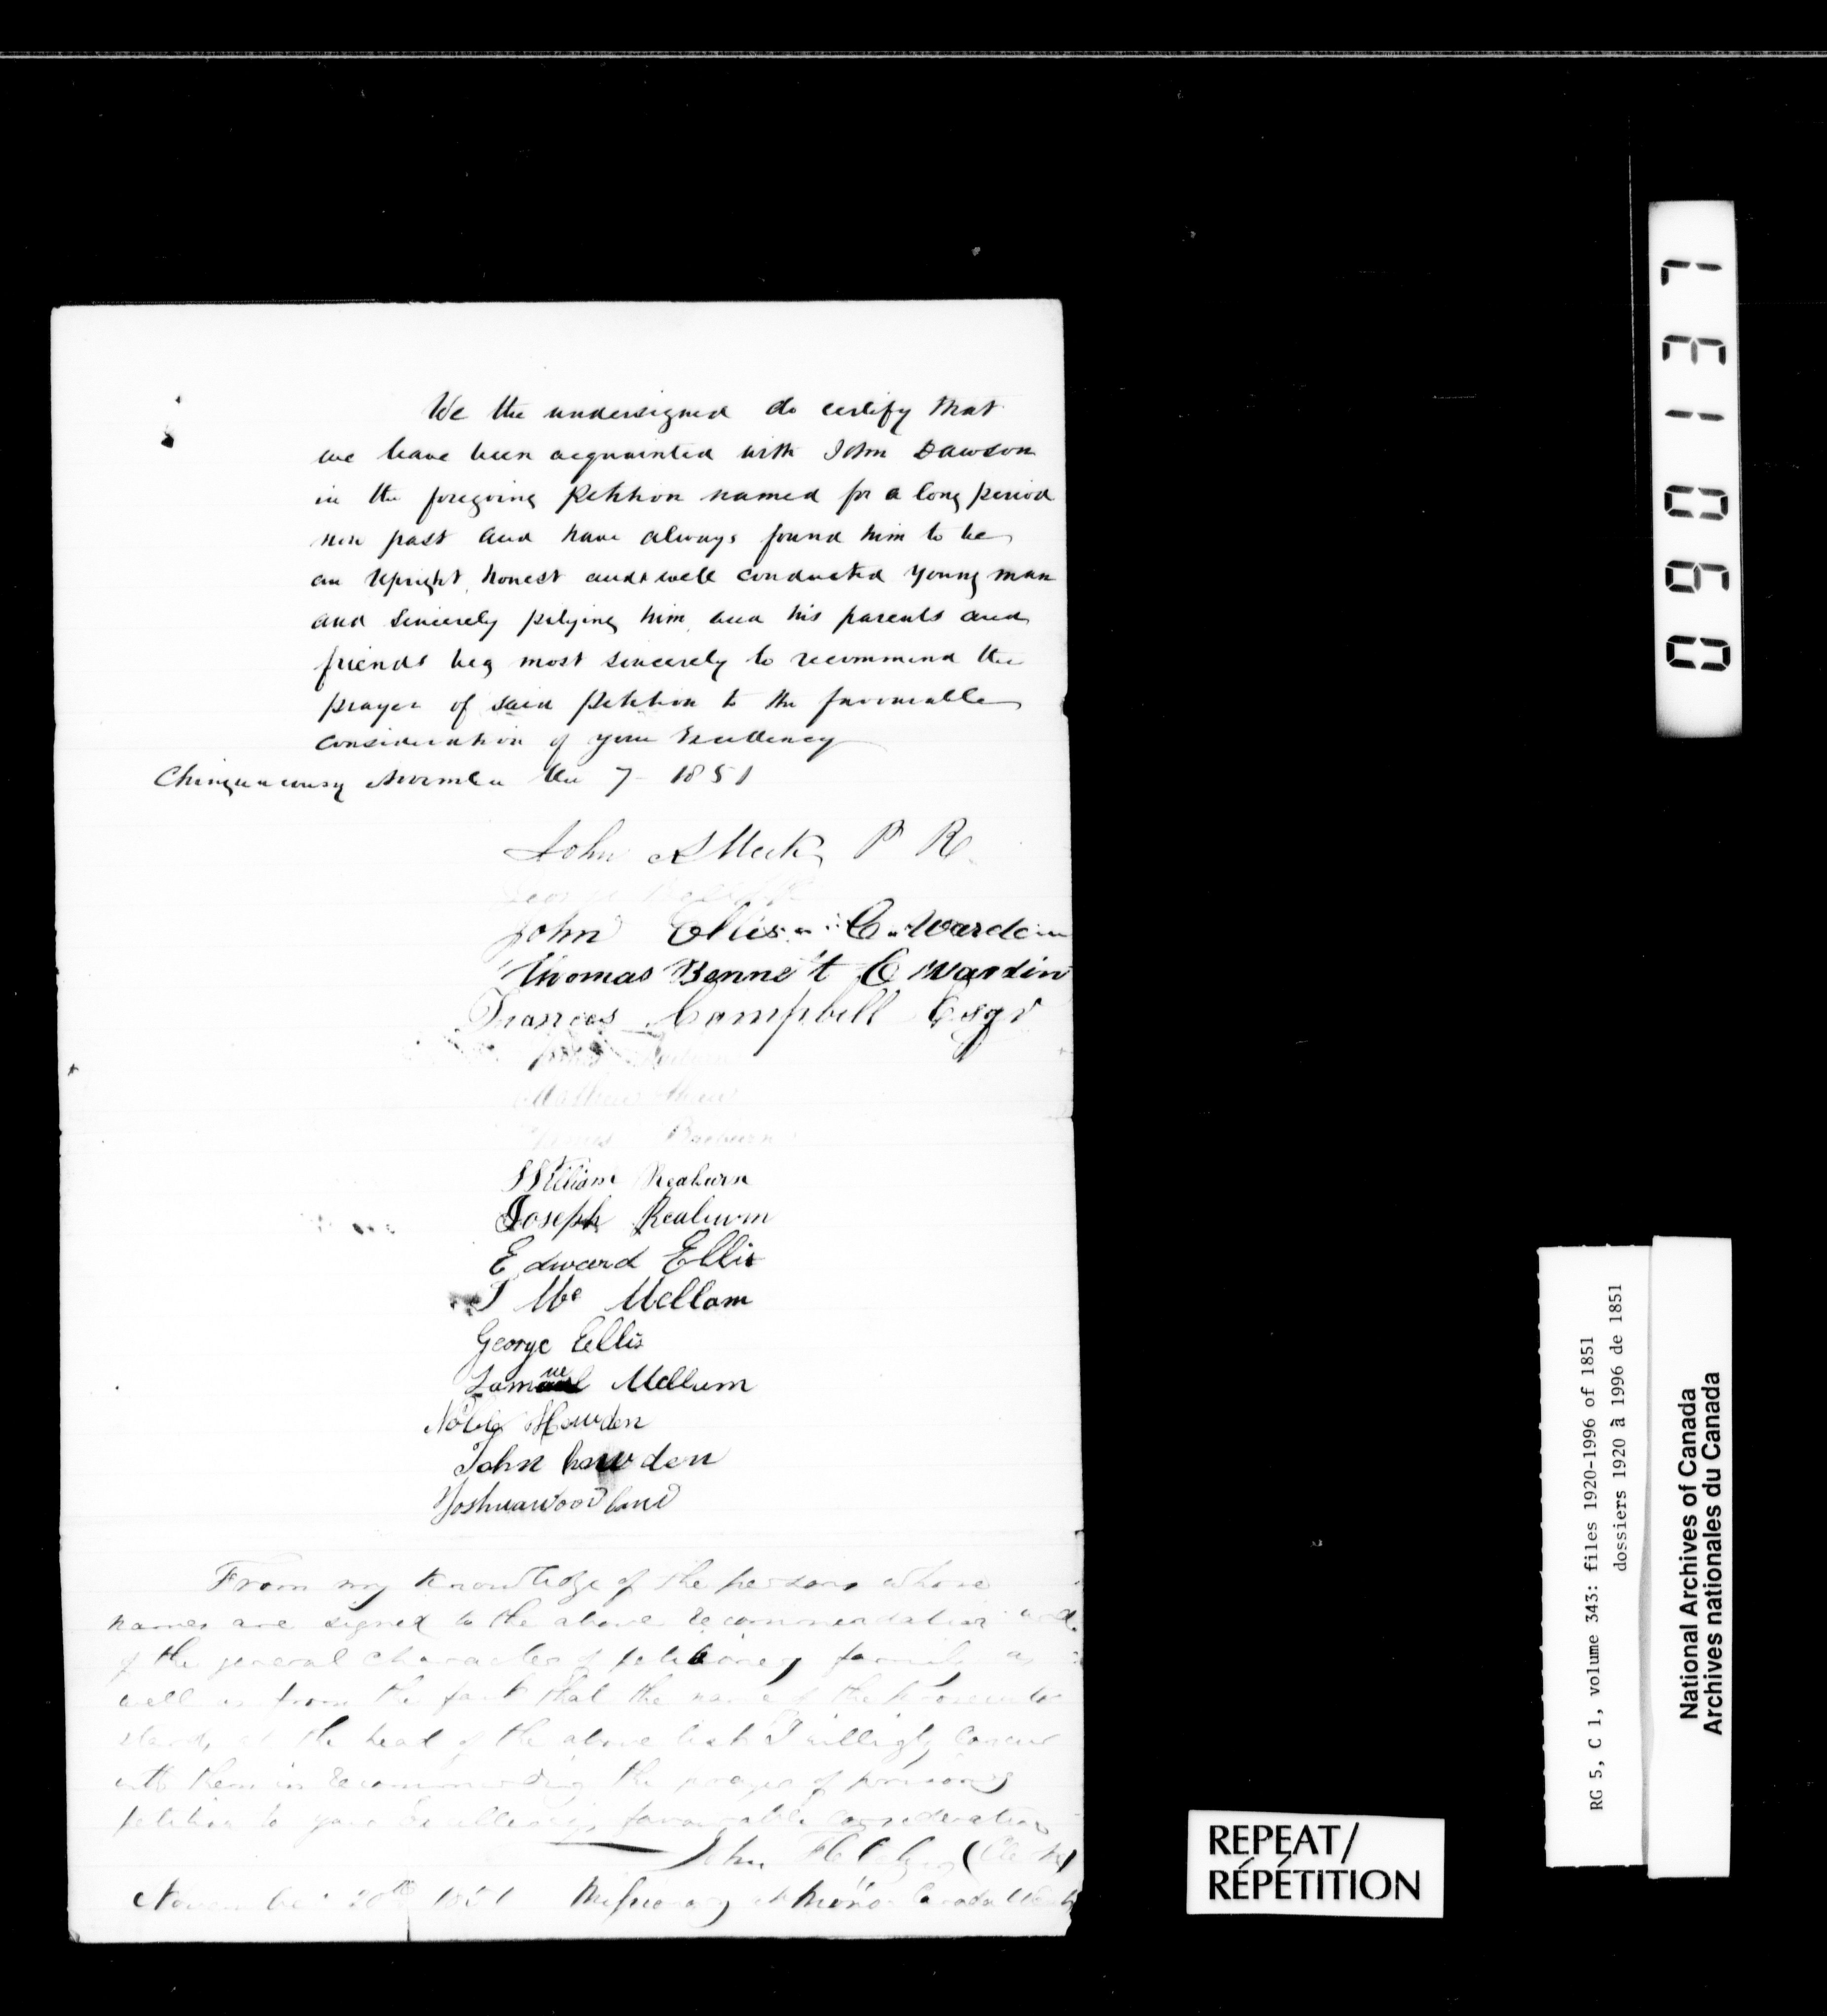 We the undersigned do certify that
we have been acquainted with John Dawson
in the foregoing Petition named for a long period
now past and have always found him to be
an upright, honest and well conducted young man
and sincerely pitying him and his parents and
friends beg most sincerely to recommend the
prayer of said Petition to the favourable
consideration of your Excellency
Chinguacousy November the 7 1851
John P R
George
John Ellis C. Warden
Thomas Bennet C Wardin
Frances Campbell Esqr
William Reaburn
Joseph Reaburn
Edward Ellis
J Mc Mellam
George Ellis
Samuel Mellum
Howden
John howden
Joshua wood land
From my knowledge of the persons whose
names are signed to the above recommendation and
of the general character of petitioners family as
well as from the fact that the name of the Prosecutor
stands at the head of the above list I willingly concur
with them in recommending the prayer of prisoners
petition to your Excellencys favourable consideration
John Fletcher
November 20th 1851 Missionary at Mono Canada West
090137
RG 5, C 1, volume 343: files 1920-1996 of 1851
dossiers 1920 à 1996 de 1851
National Archives of Canada
Archives nationales du Canada
REPEAT/
RÉPÉTITION